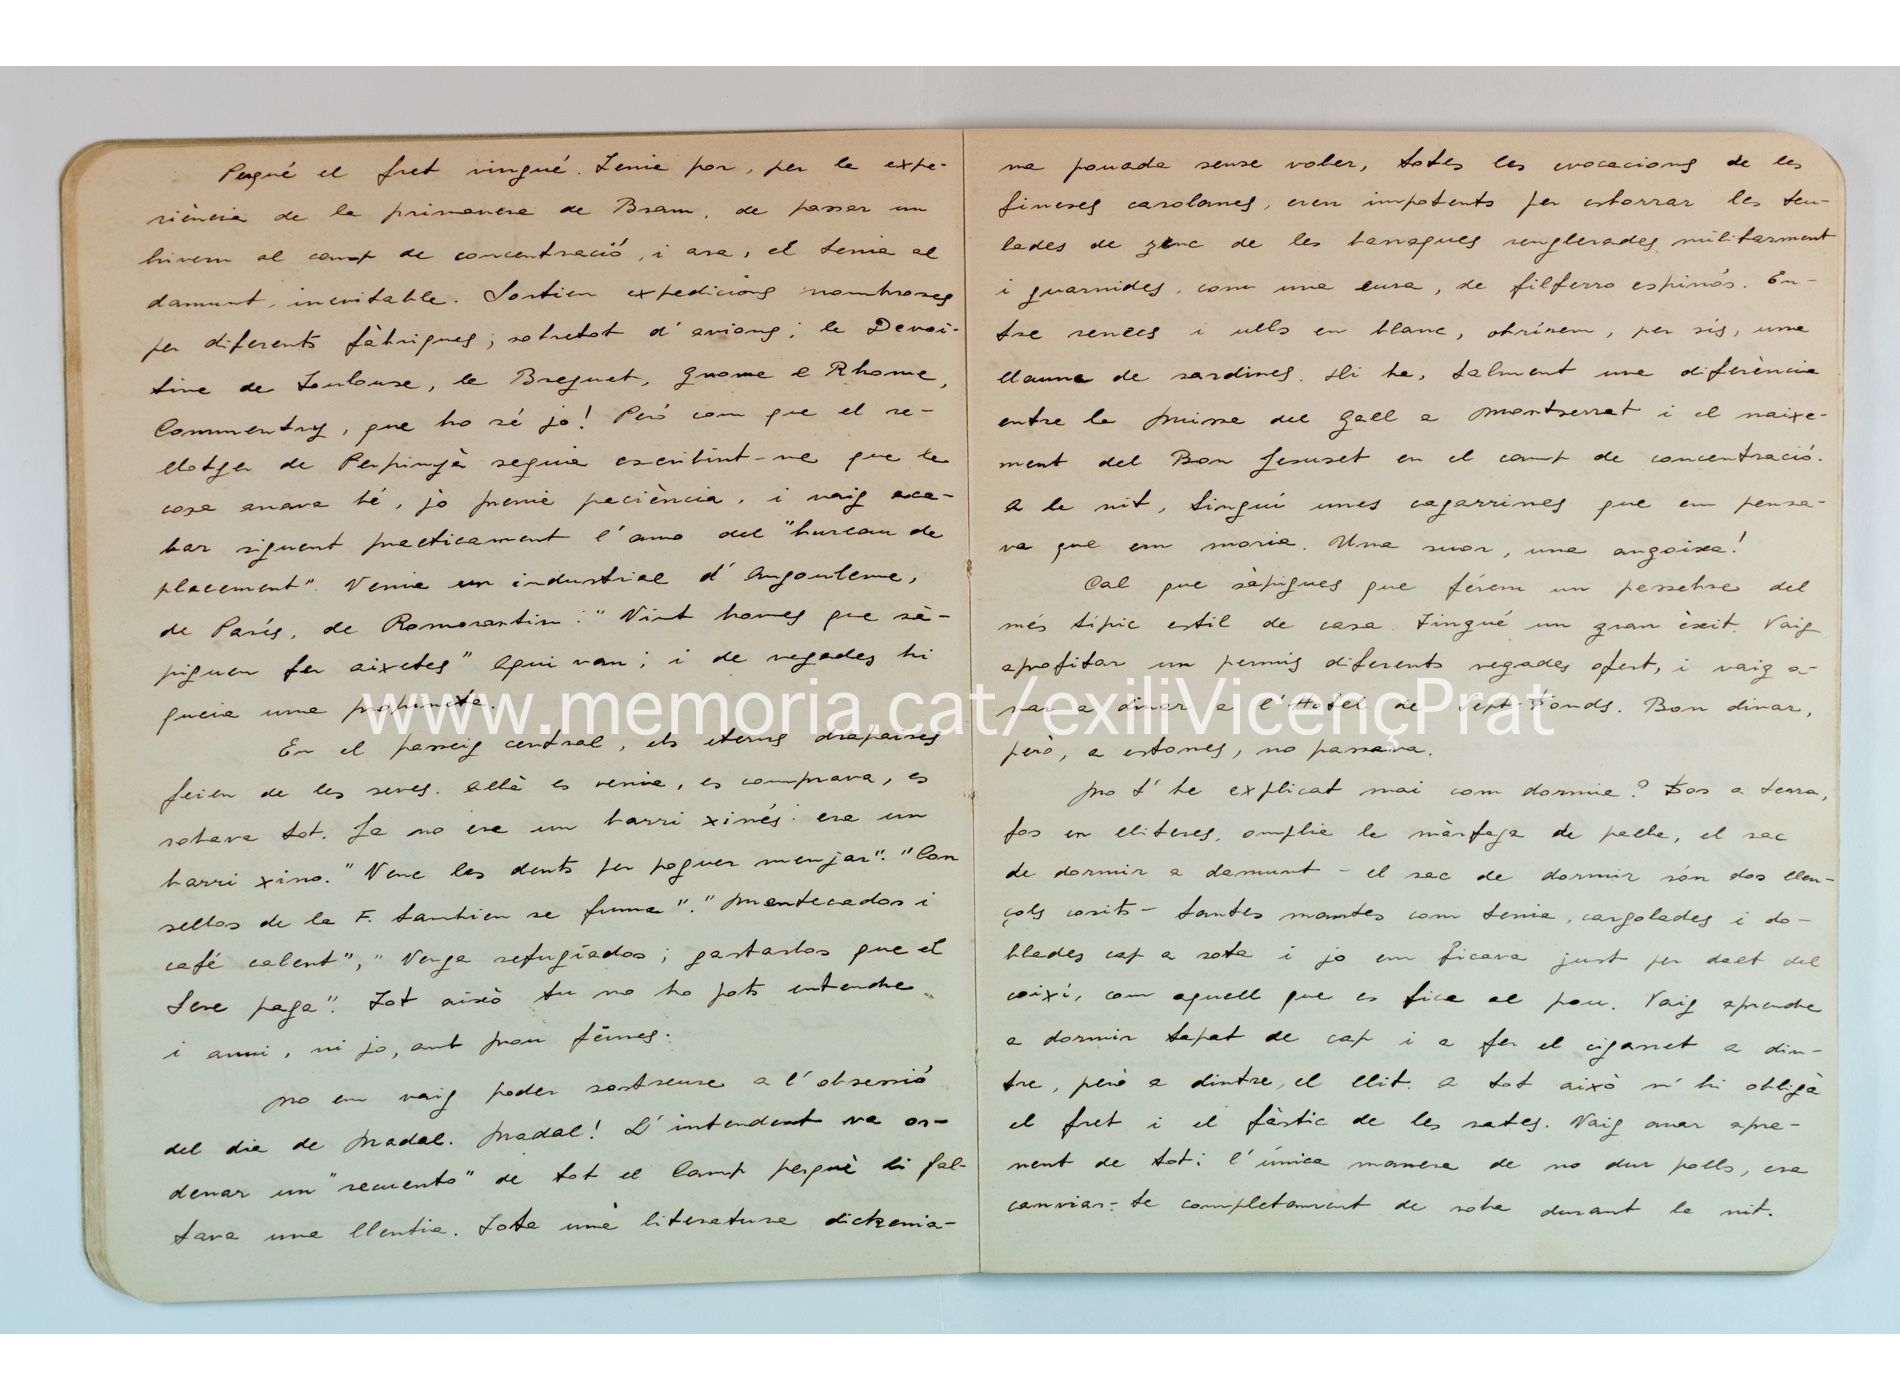 Perquè el fret vingué. Tenia por, per la expe-
riència de la primavera de Bram, de passar un
hivern al camp de concentració, i ara, el tenia al
damunt, inevitable. Sortien expedicions nombroses
per diferents fàbriques; sobretot d'avions; la Devoi-
tine de Toulouse, la Breguet, Gnome e Rhome,
Commentry, que ho sé jo! Però com que el re-
llotger de Perpinyà seguia escribint-ne que la
cosa anava bé, jo prenia paciència, i vaig aca-
bar siguent practicament l'amo del "bureau de
placement". Venia un industrial d'Angouleme,
de París, de Romorantin: "Vint homes que sà-
piguen fer aixetes" Aqui van; i de vegades hi
gueia una propineta.
En el passeig central, els eterns drapaires
feien de les seves. Allà es venia, es comprava, es
robava tot. Ja no era un barri xinés: era un
barri xino. "Venc les dents per poguer menjar". "Con
sellos de la F. tambien se fuma". "Mantecados i
café calent", "Venga refugiados; gastarlos que el
Sere paga". Tot això tu no ho pots entendre
i anni, ni jo, amb prou feines.
No em vaig poder sostreure a l'obsessió
del dia de Nadal. Nadal! L'intendent va or-
denar un "recuento" de tot el Camp perquè li fal-
tava una llentia. Tota una literatura dickenia-
na pouada sense voler, totes les evocacions de les
fineses casolanes, eren impotents per esborrar les teu-
lades de zinc de les barraques renglerades militarment
i guarnides, com una eura, de filferro espinós. En-
tre renecs i ulls en blanc, obrírem, per sis, una
llauna de sardines. Hi ha, talment una diferència
entre la Missa del Gall a Montserrat i el naixe-
ment del Bon Jesuset en el camp de concentració.
A la nit, tinguí unes cagarrines que em pensa-
va que em moria. Una suor, una angoixa!
Cal que sàpigues que férem un pessebre del
més típic estil de casa. Tingué un gran èxit. Vaig
aprofitar un permís diferents vegades ofert, i vaig a-
nar a dinar a l'Hotel de Sept-Fonds. Bon dinar,
però, a estones, no passava.
No t'he explicat mai com dormia? Fos a terra,
fos en lliteres, omplia la màrfega de palla, el sac
de dormir a damunt - el sac de dormir són dos llen-
çols cosits - tantes mantes com tenia, cargolades i do-
blades cap a sota i jo em ficava just per dalt del
coixí, com aquell que es fica al pou. Vaig apendre
a dormir tapat de cap i a fer el cigarret a din-
tre, però a dintre, el llit. A tot això m'hi obligà
el fret i el fàstic de les rates. Vaig anar apre-
nent de tot: l'única manera de no dur polls, era
canviar-te completament de roba durant la nit.
www.memoria.cat/exiliVicençPrat